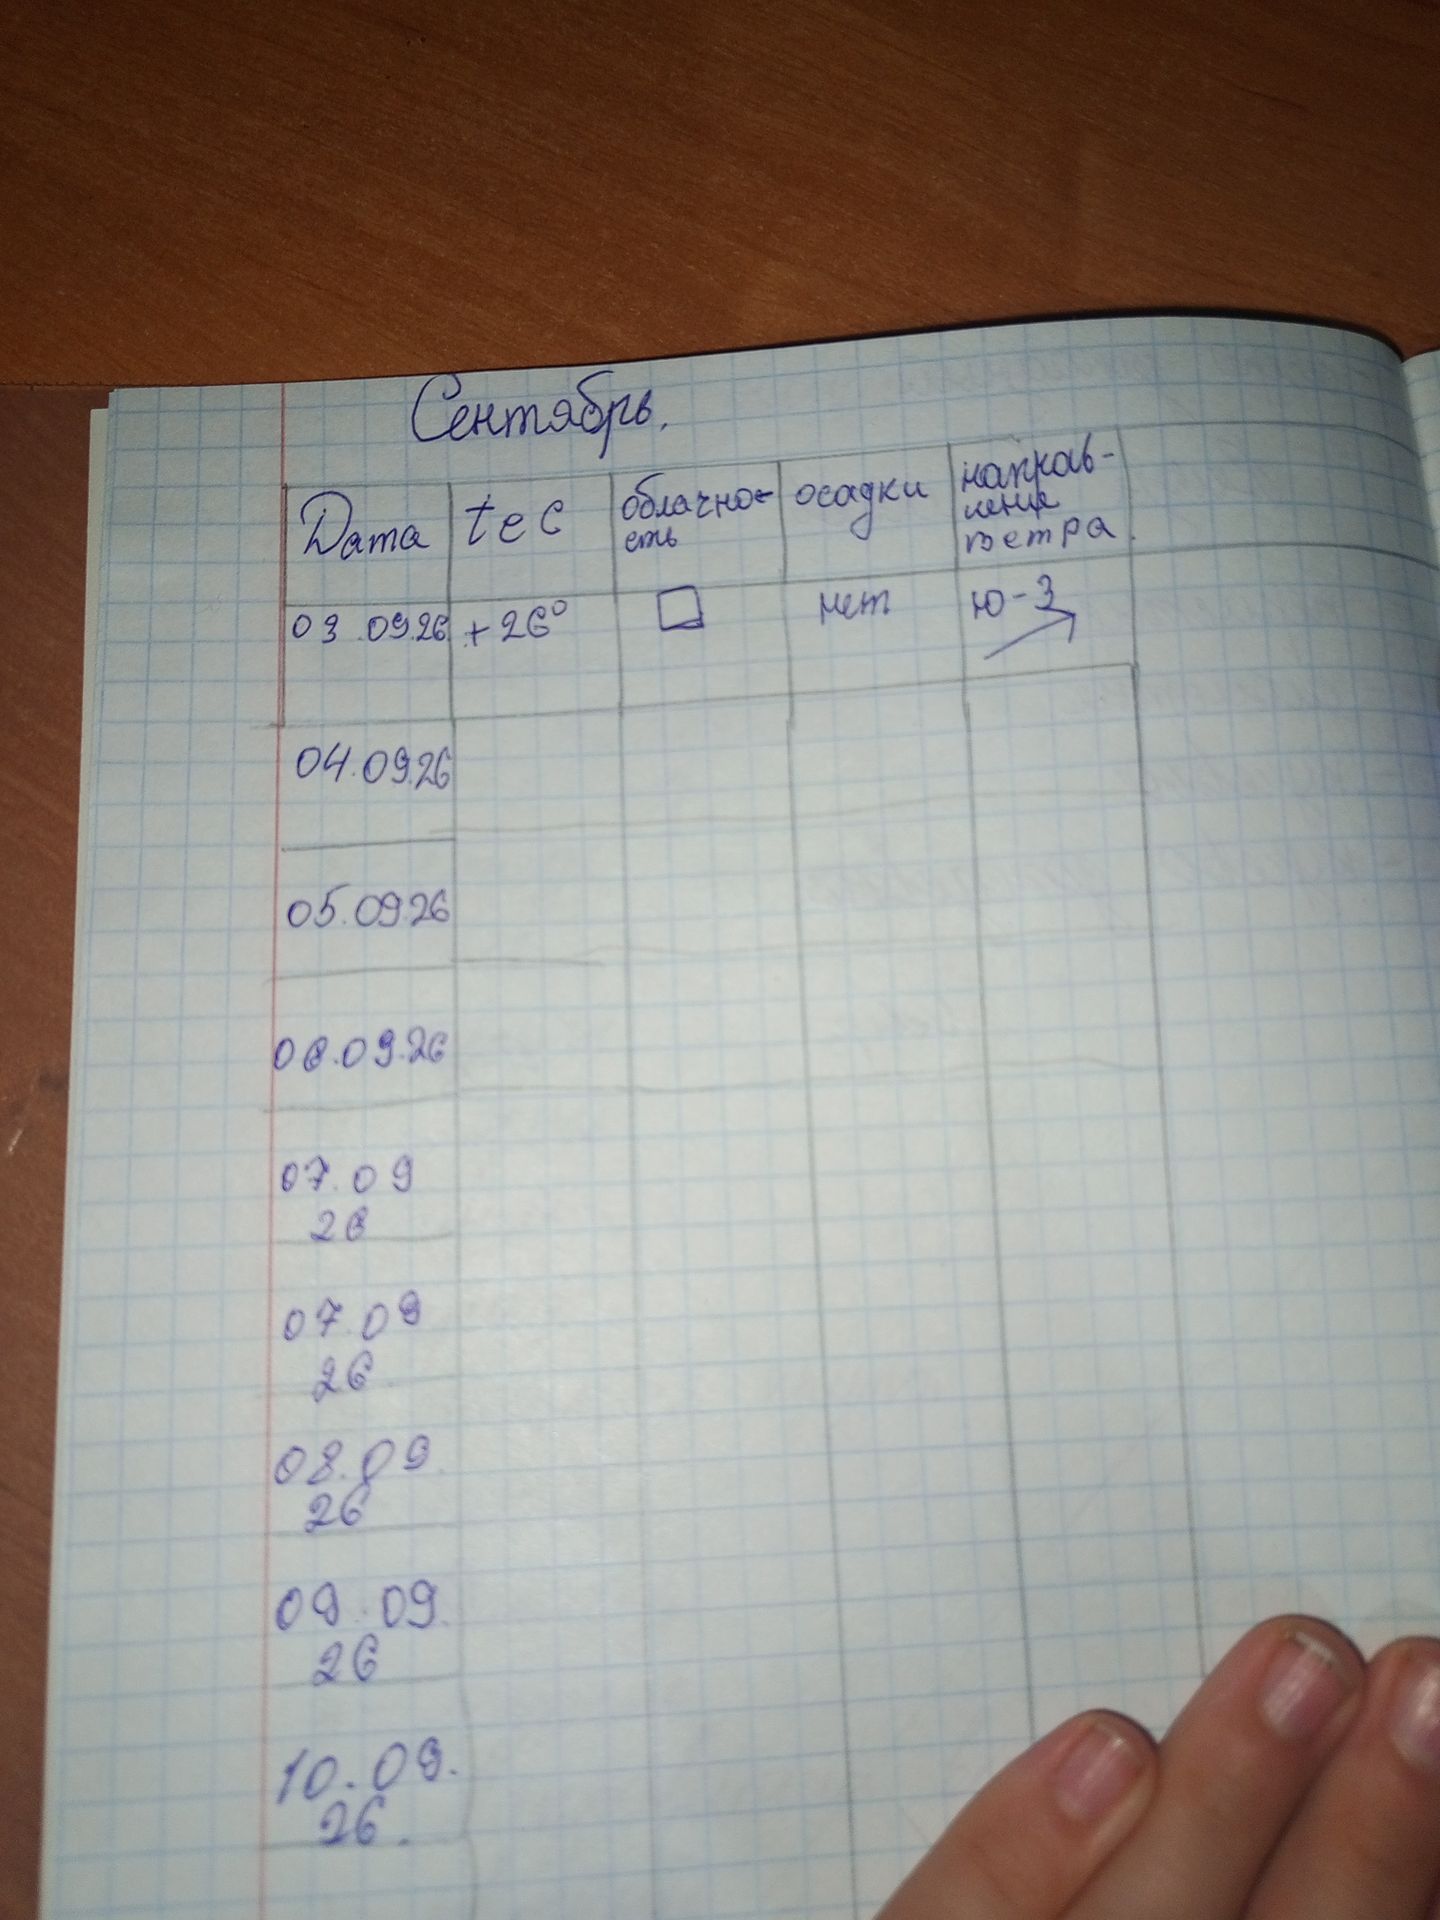 Сентябрь.
Дата t e C облачно- осадки направ-
сть ления
ветра.
03.09.26 +26° нет Ю-З
04.09.26
05.09.26
06.09.26
07.09
26
07.09
26
08.09.
26
09.09.
26
10.09.
26.